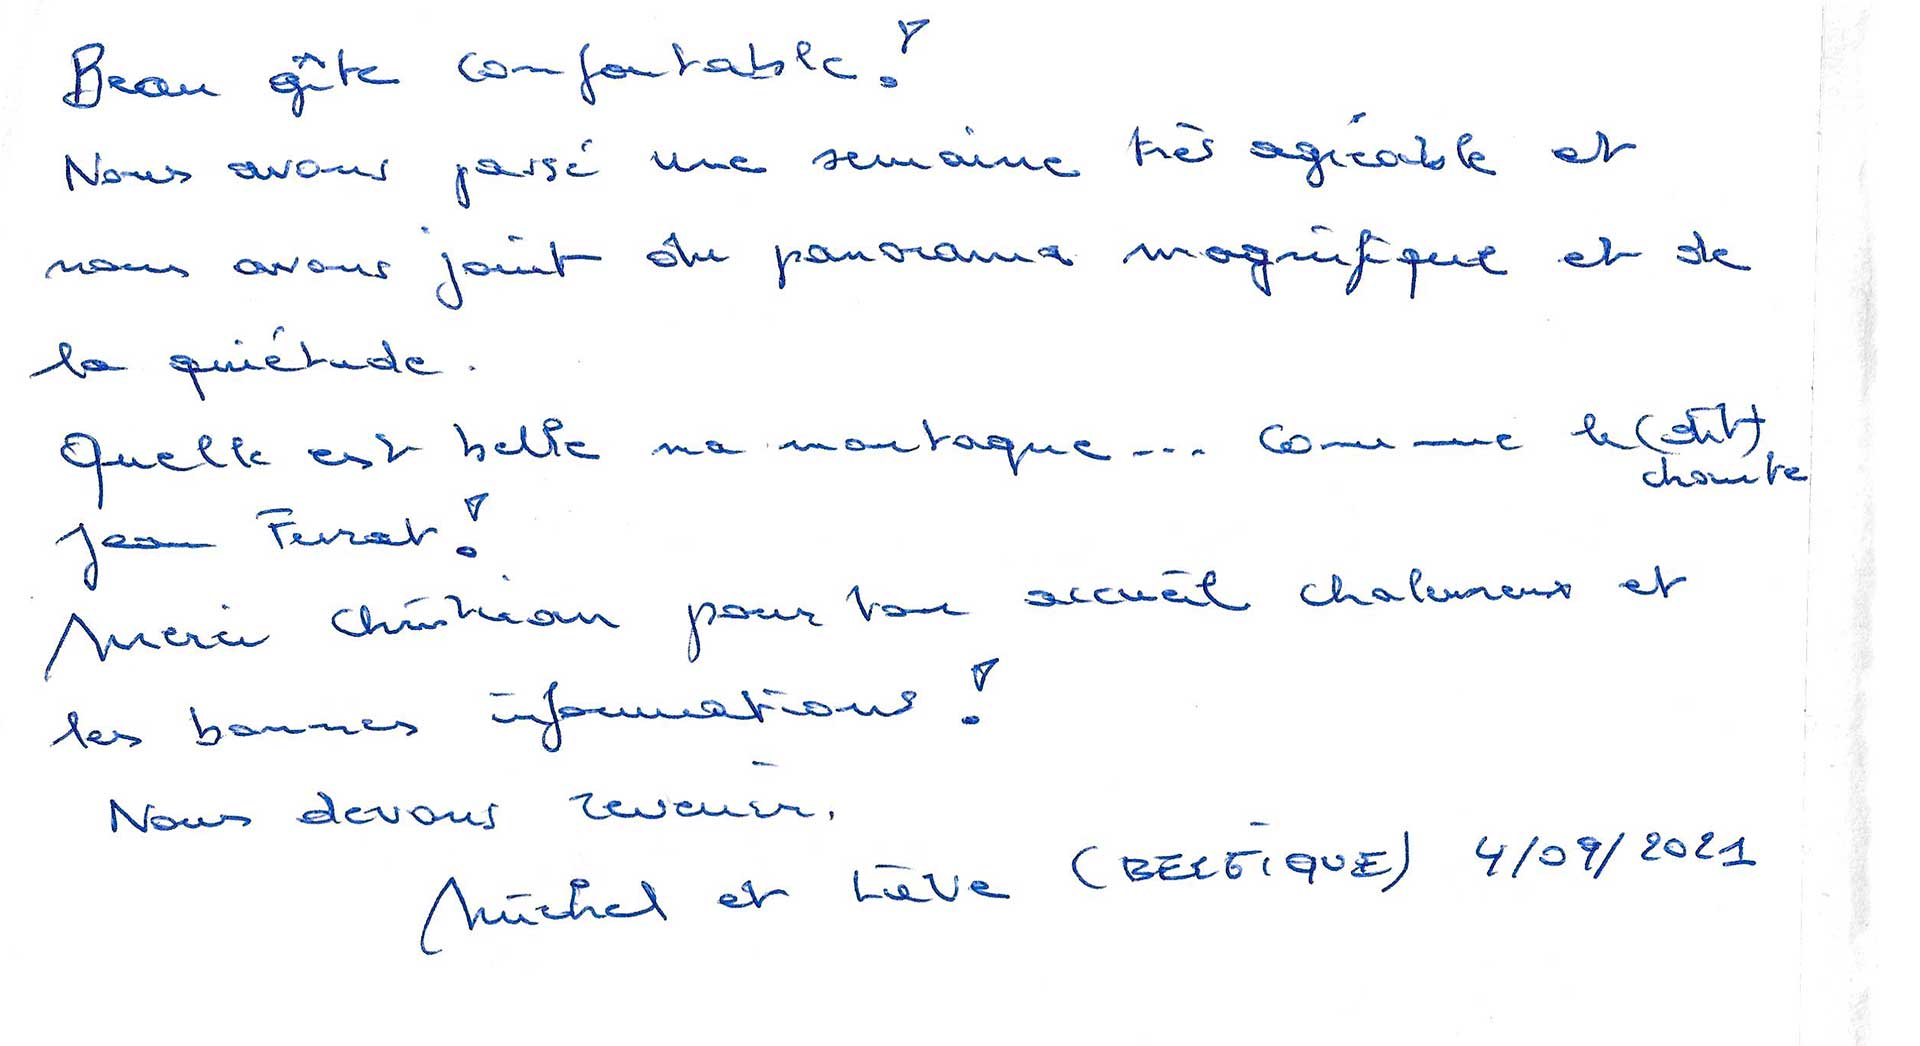 Beau gîte confortable !
Nous avons passé une semaine très agréable et
nous avons joint du panorama magnifique et de
la quiétude.
Quelle est belle ma montaque... comme le (dit)
chante
Jean Ferrat !
Merci Christian pour ton accueil chaleureux et
les bonnes informations !
Nous devons revenir.
Michel et Liève (BELGIQUE) 4/09/2021